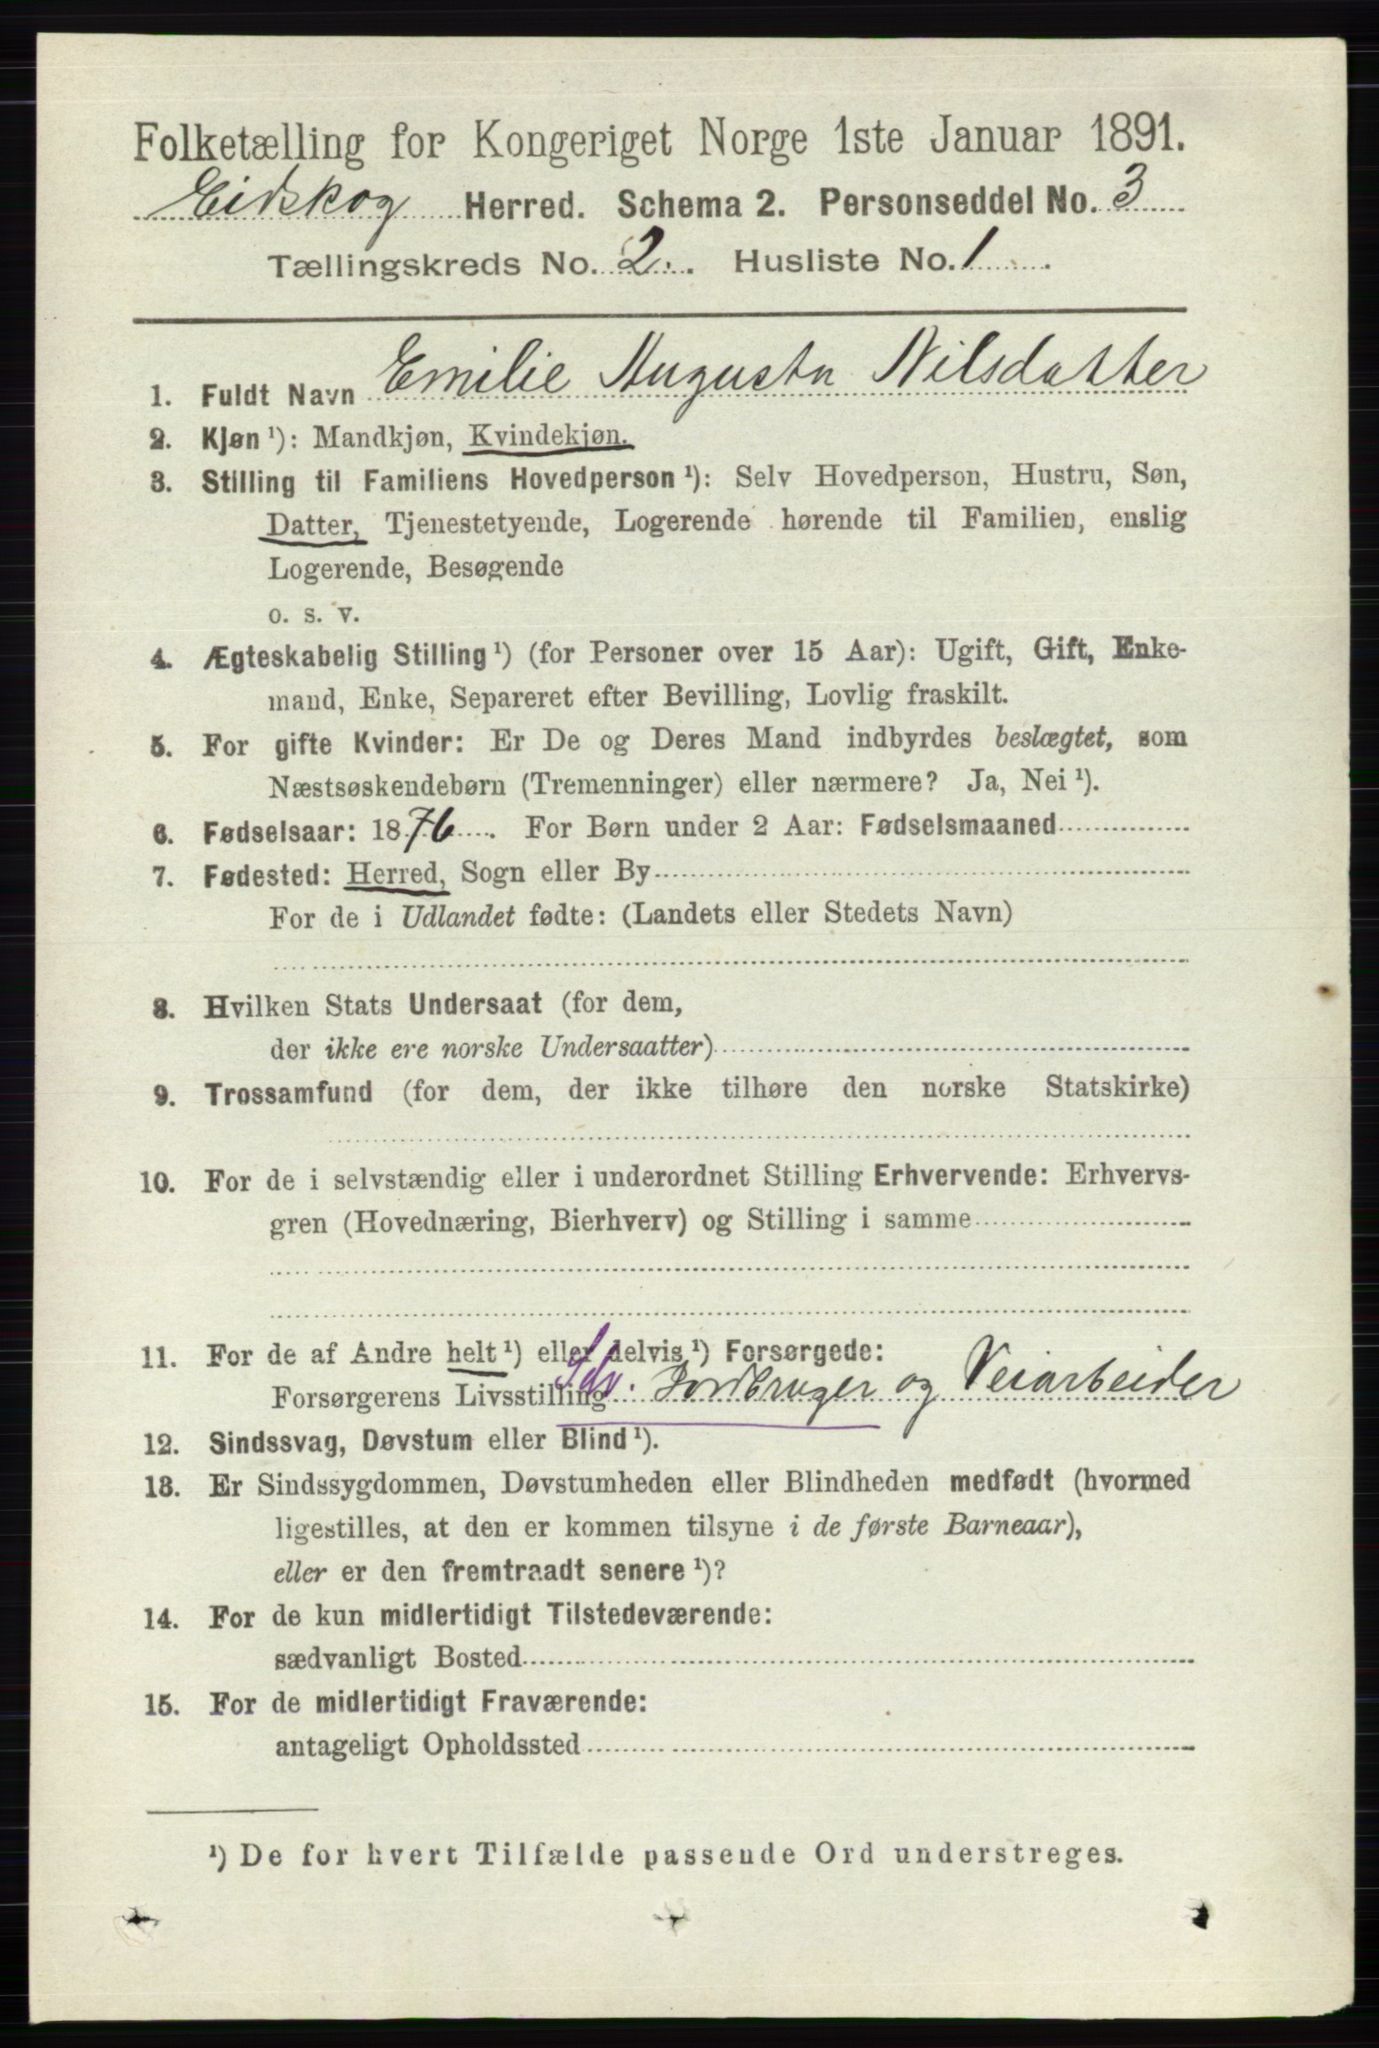 Folketælling for Kongeriget Norge 1ste Januar 1891.
Eidskog Herred. Schema 2. Personseddel No. 3
Tællingskreds No. 2. Husliste No. 1
1. Fuldt Navn Emilie Augusta Nilsdatter
2. Kjøn ¹): Mandkjøn, Kvindekjøn.
3. Stilling til Familiens Hovedperson ¹): Selv Hovedperson, Hustru, Søn,
Datter, Tjenestetyende, Logerende hørende til Familien, enslig
Logerende, Besøgende
o. s. v.
4. Ægteskabelig Stilling ¹) (for Personer over 15 Aar): Ugift, Gift, Enke-
mand, Enke, Separeret efter Bevilling, Lovlig fraskilt.
5. For gifte Kvinder: Er De og Deres Mand indbyrdes beslægtet, som
Næstsøskendebørn (Tremenninger) eller nærmere? Ja, Nei ¹).
6. Fødselsaar: 1876. For Børn under 2 Aar: Fødselsmaaned
7. Fødested: Herred, Sogn eller By
For de i Udlandet fødte: (Landets eller Stedets Navn)
8. Hvilken Stats Undersaat (for dem,
der ikke ere norske Undersaatter)
9. Trossamfund (for dem, der ikke tilhøre den norske Statskirke)
10. For de i selvstændig eller i underordnet Stilling Erhvervende: Erhvervs-
gren (Hovednæring, Bierhverv) og Stilling i samme
11. For de af Andre helt ¹) eller delvis ¹) Forsørgede:
Forsørgerens Livsstilling Selv. Jordbruger og Veiarbeider
12. Sindssvag, Døvstum eller Blind ¹).
13. Er Sindssygdommen, Døvstumheden eller Blindheden medfødt (hvormed
ligestilles, at den er kommen tilsyne i de første Barneaar),
eller er den fremtraadt senere ¹)?
14. For de kun midlertidigt Tilstedeværende:
sædvanligt Bosted
15. For de midlertidigt Fraværende:
antageligt Opholdssted
¹) De for hvert Tilfælde passende Ord understreges.